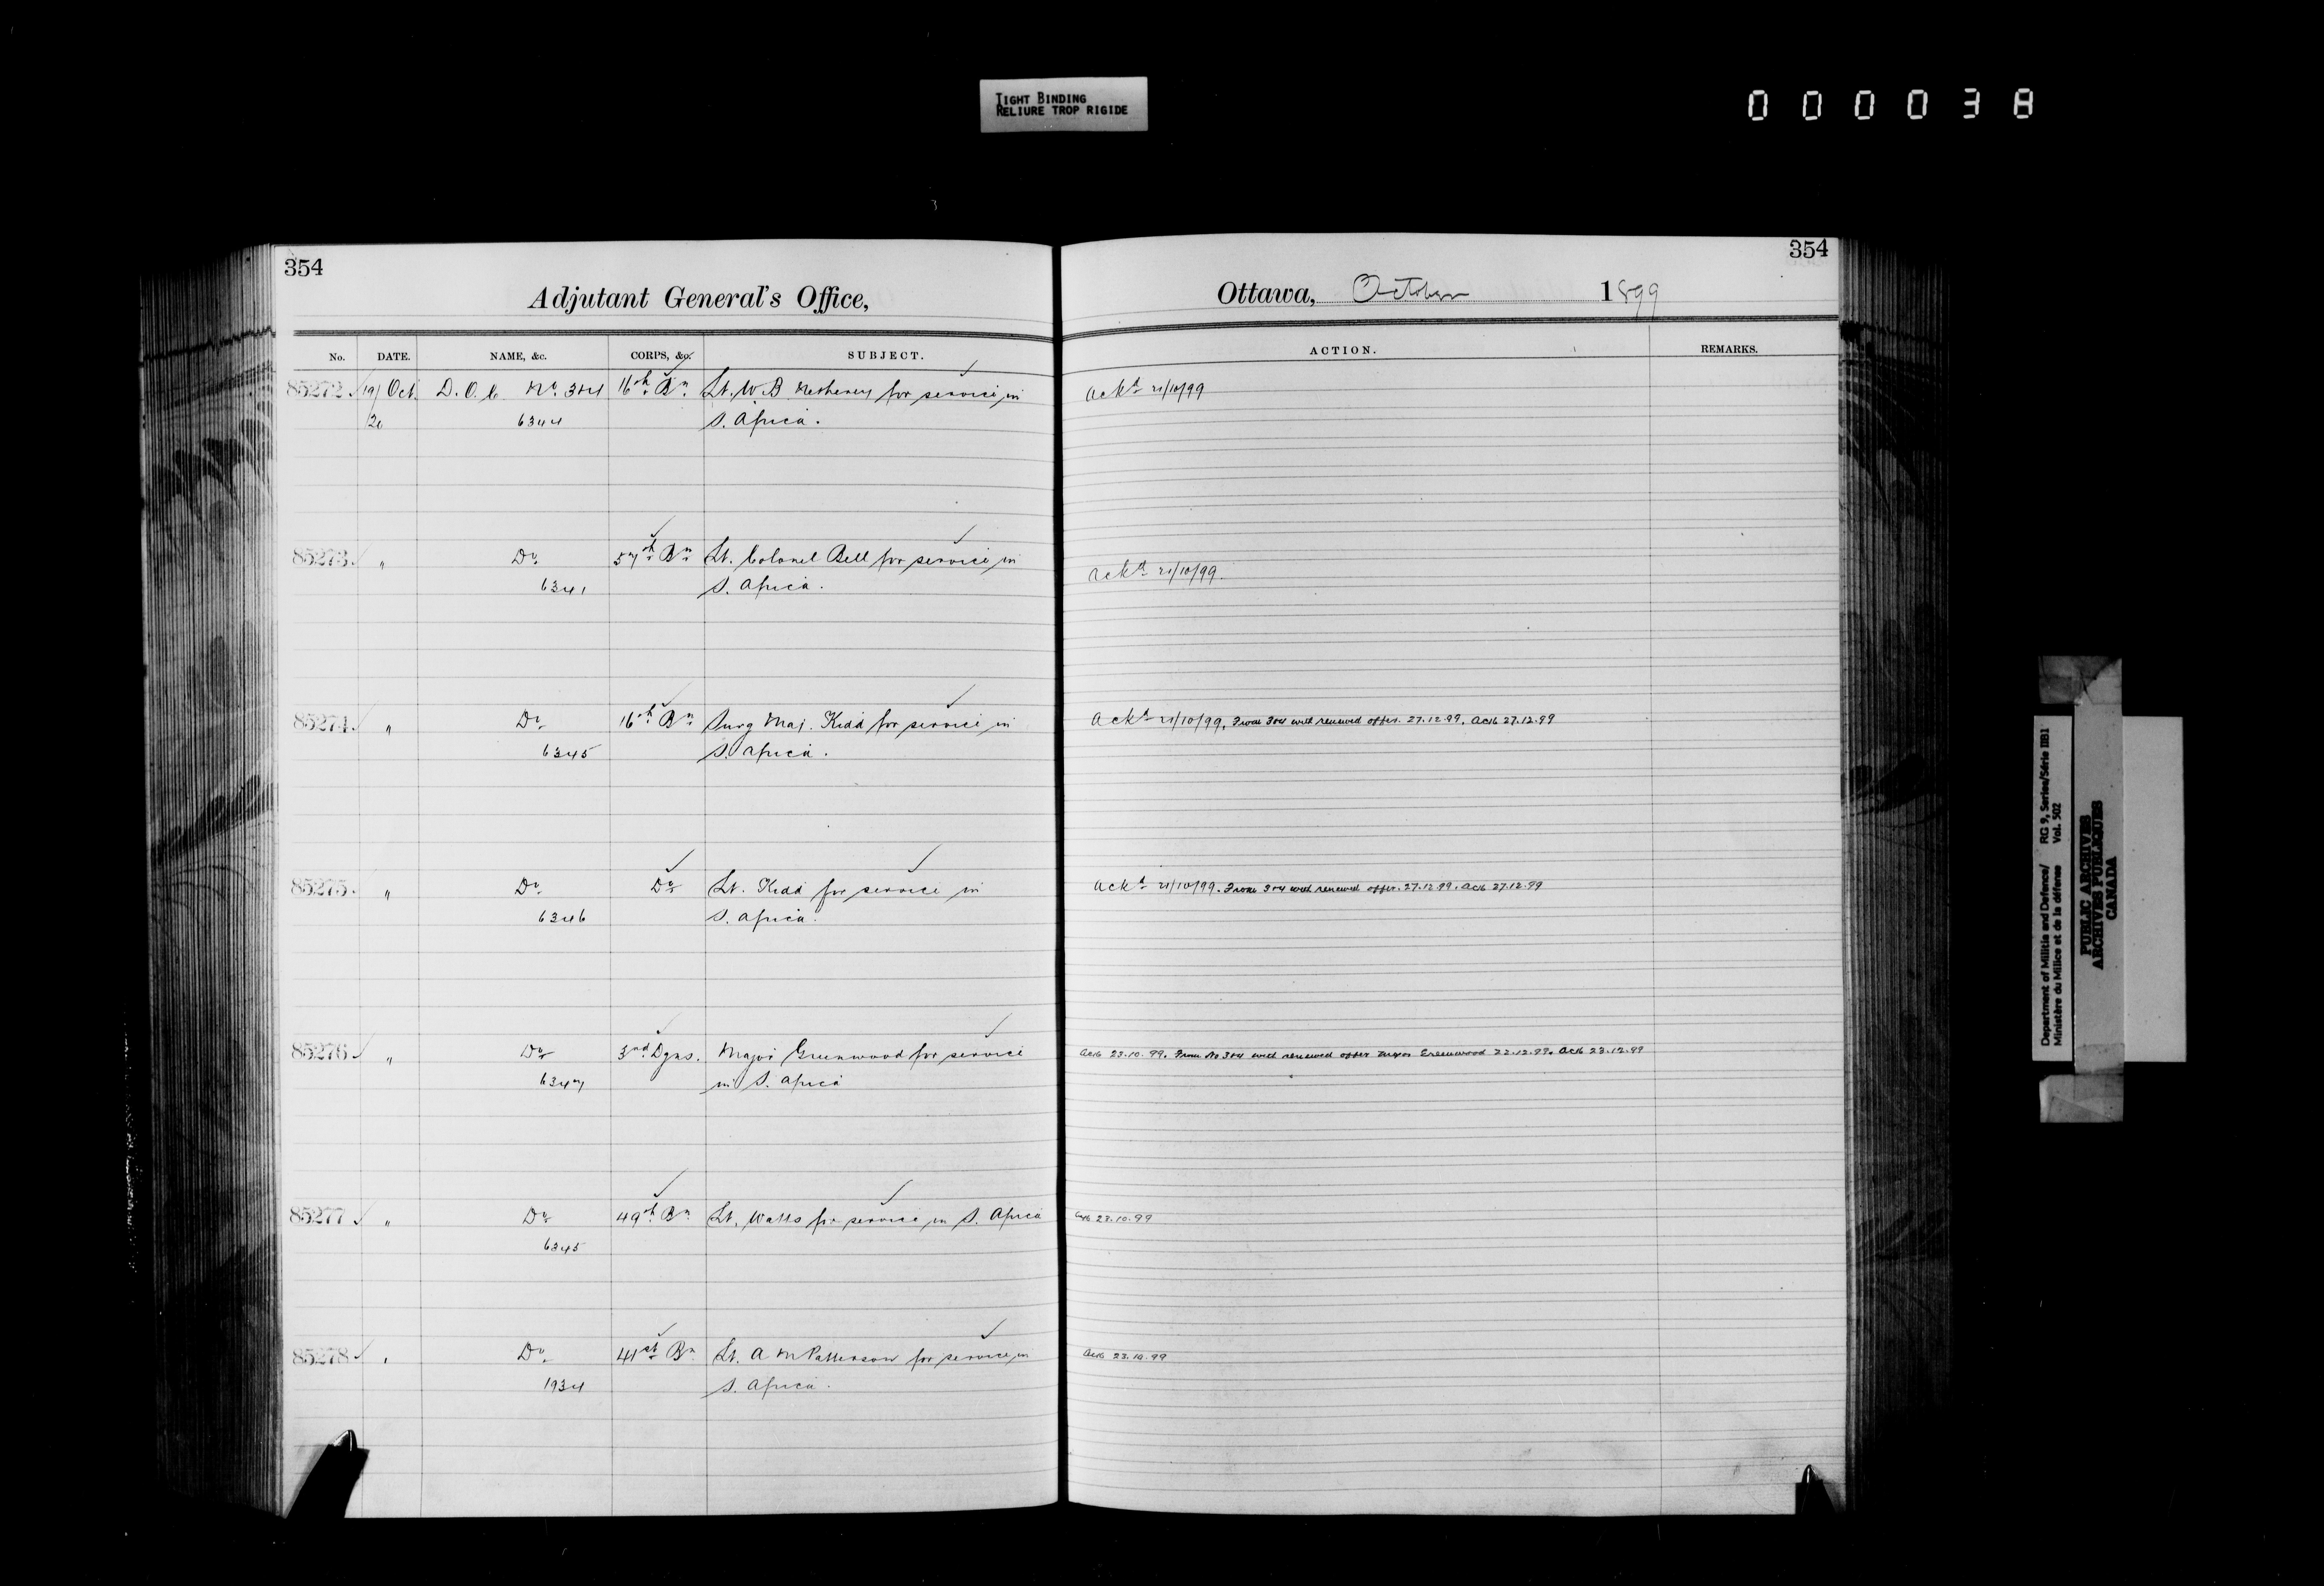 TIGHT BINDING
RELIURE TROP RIGIDE
000038
354
Adjutant General's Office,
No. DATE. NAME, &c. CORPS, &c. SUBJECT.
85272 19/ Oct. D.O.C. No. 3&4 16th Bn. Lt. W B for service in
20 6344 S. Africa.
85273 " Do 57th Bn Lt. Colonel Bell for service in
6341 S. Africa.
85274 " Do 16th Bn Surg Maj. Kidd for service in
6345 S. Africa.
85275 " Do Do Lt. Kidd for service in
6346 S. Africa.
85276 " Do 3rd Dgns. Major Greenwood for service
6347 in S. Africa
85277 " Do 49th Bn Lt. Watts for service in S. Africa
6345
85278 " Do 41st Bn Lt. A M Patterson for service in
1934 S. Africa.
354
Ottawa, October 1899
ACTION. REMARKS.
Ackd 21/10/99
Ackd 21/10/99.
Ackd 21/10/99. From 3&4 with renewed offer. 27.12.99. Ack 27.12.99
Ackd 21/10/99. From 3&4 with renewed offer. 27.12.99. Ack 27.12.99
Ack 23.10.99. From No 3&4 with renewed offer Major Greenwood 22.12.99. Ack 23.12.99
Ack 23.10.99
Ack 23.10.99
Department of Militia and Defence/ RG 9, Series/Série IIB1
Ministère du Milice et de la défense Vol. 502
PUBLIC ARCHIVES
ARCHIVES PUBLIQUES
CANADA